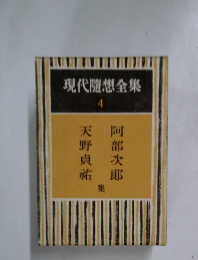 現代隨想全集
4
阿部次郎
天野貞祐
集